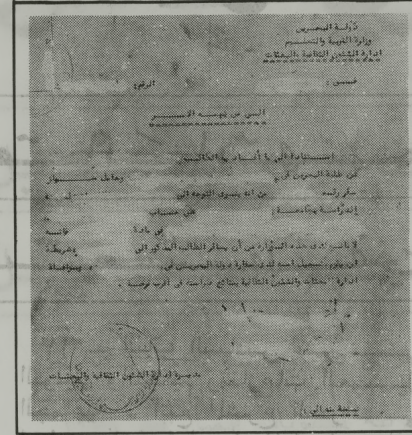 دولة البحرين
وزارة التربية والتعليم
ادارة الشئون الثقافية والبعثات
الرقم :
الى من يهمه الامر
استنادا الى ما أفاد به الطالب
من طلبة البحرين في وحامل جواز
سفر رقم من انه ينوى التوجه الى
للدراسة بجامعة على حساب
في مادة فانه
لا مانع لدى هذه الوزارة من أن يسافر الطالب المذكور الى شريطة
ان يقوم بتسجيل اسمه لدى سفارة دولة البحرين في وبموافاة
ادارة البعثات والشئون الثقافية بنتائج دراسته في أقرب فرصة .
مديرة ادارة الشئون الثقافية والبعثات
نسخة منه الى :